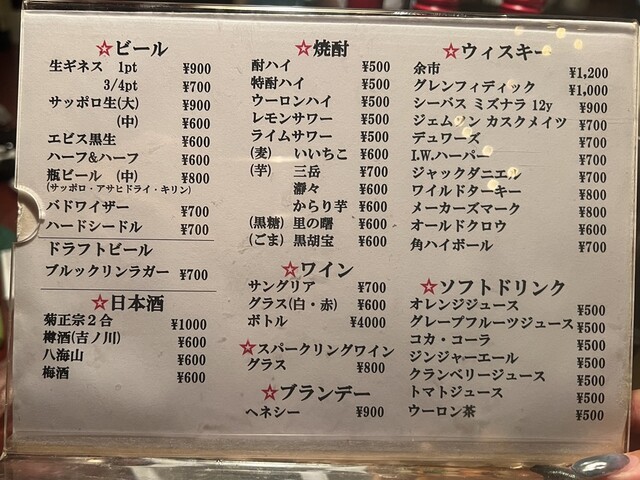 ☆ビール
生ギネス 1pt ¥900
3/4pt ¥700
サッポロ生(大) ¥900
(中) ¥600
エビス黒生 ¥600
ハーフ&ハーフ ¥600
瓶ビール (中) ¥800
(サッポロ・アサヒドライ・キリン)
バドワイザー ¥700
ハードシードル ¥700
ドラフトビール
ブルックリンラガー ¥700
☆日本酒
菊正宗2合 ¥1000
樽酒(吉ノ川) ¥600
八海山 ¥600
梅酒 ¥600
☆焼酎
酎ハイ ¥500
特酎ハイ ¥500
ウーロンハイ ¥500
レモンサワー ¥500
ライムサワー ¥500
(麦) いいちこ ¥600
(芋) 三岳 ¥700
¥600
からり芋 ¥600
(黒糖) 里の曙 ¥600
(ごま) 黒胡宝 ¥600
☆ワイン
サングリア ¥700
グラス(白・赤) ¥600
ボトル ¥4000
☆スパークリングワイン
グラス ¥800
☆ブランデー
ヘネシー ¥900
☆ウィスキー
余市 ¥1,200
グレンフィディック ¥1,000
シーバス ミズナラ 12y ¥900
ジェムソン カスクメイツ ¥700
デュワーズ ¥700
I.W.ハーパー ¥700
ジャックダニエル ¥700
ワイルドターキー ¥800
メーカーズマーク ¥800
オールドクロウ ¥600
角ハイボール ¥700
☆ソフトドリンク
オレンジジュース ¥500
グレープフルーツジュース ¥500
コカ・コーラ ¥500
ジンジャーエール ¥500
クランベリージュース ¥500
トマトジュース ¥500
ウーロン茶 ¥500